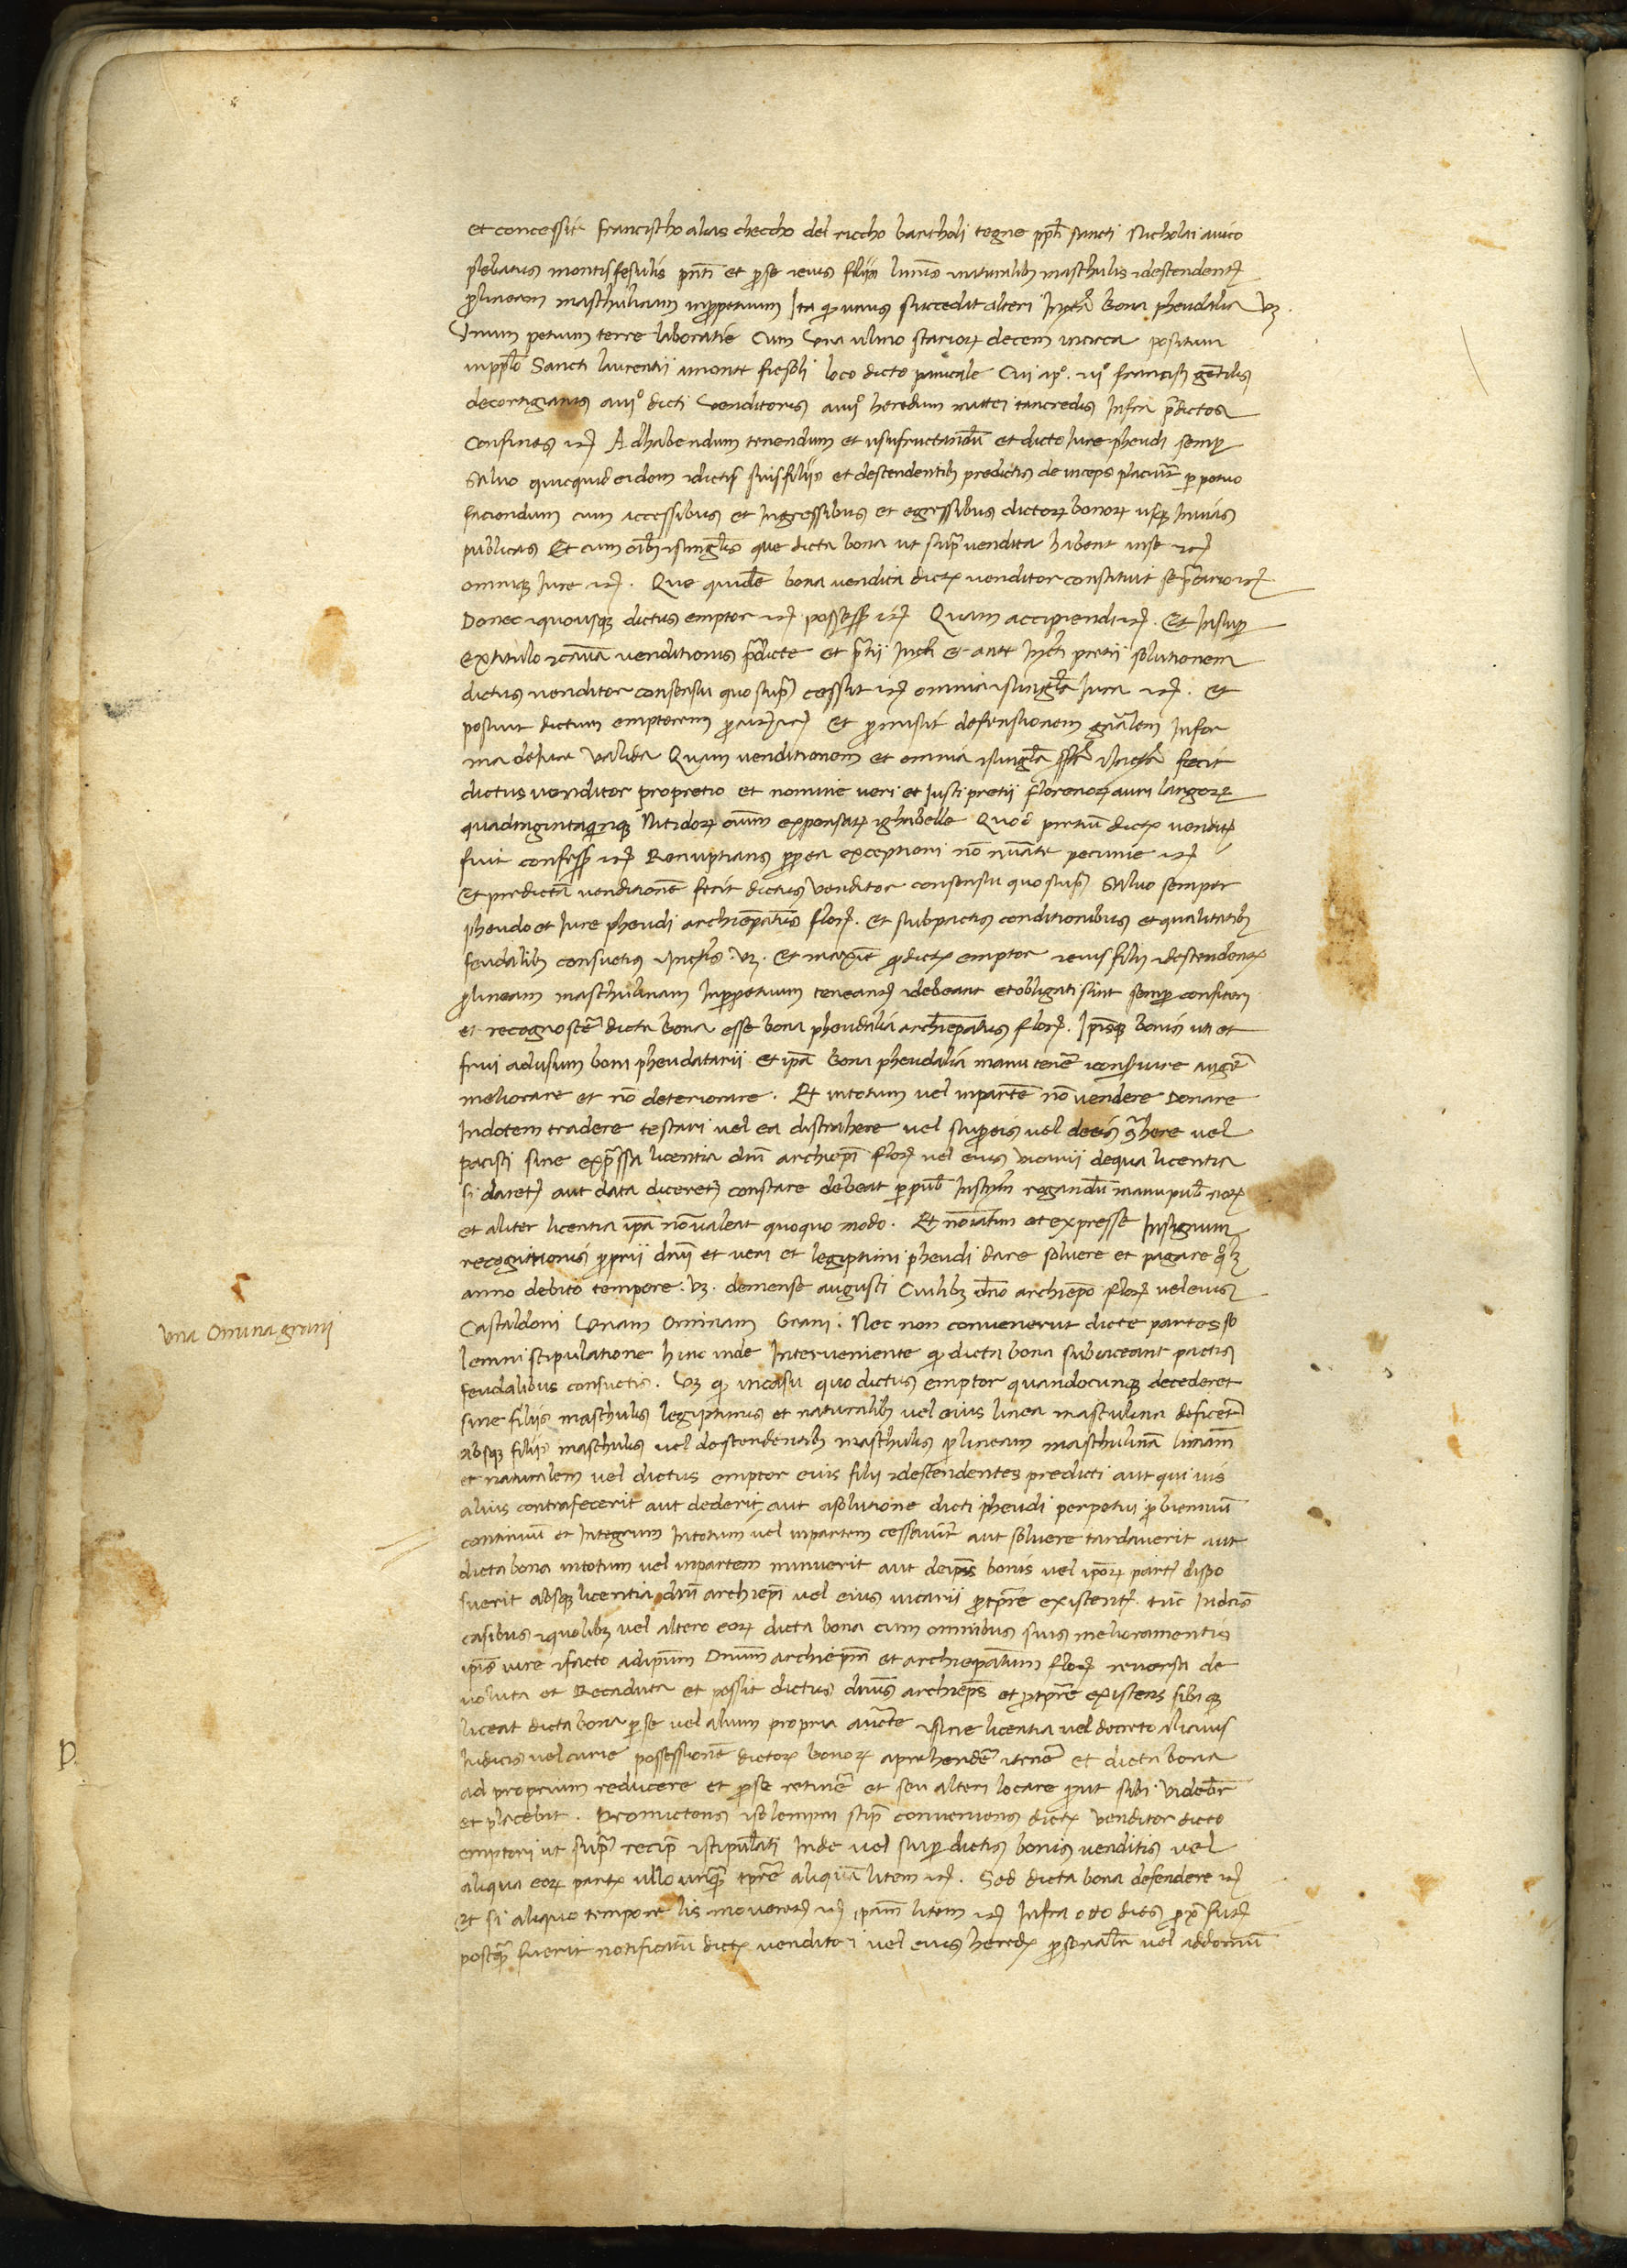 et concessit francischo alias checcho del riccho bartholi togne ppli sancti Nicholai avico
plebatus montisfesulis pnti et pro se et eius filiis ltimis naturalib maschulis et descendent
pro lineam maschulinam in perpetuum Ita q unus succedat alteri Infrta bona pheudalia vz.
Unum petium terre laboratie Cum una ulmo starior decem incirca positum
in pplo Sancti laurentii amonte fiesoli loco dicto panicale Cui a po. iio francisci gentilis
decortigianis a iiio dicti venditoris a iiiio heredum mattei tancredis Infra predictos
Confines etc Adhabendum tenendum et usufructandu et dicto Iure pheudi semp
Salvo quicquid eidem et dictis suis filiis et descendentib predictis deinceps placuerit perpetuo
faciendum cum accessibus et Ingressibus et egressibus dictor bonor usq Invias
publicas Et cum oib et singulis que dicta bona ut supra vendita habent inse etc
omniq Iure etc. Que quide bona vendita dict venditor constituit se precario etc
Donec et quousq dictus emptor etc possess etc Quam accipiendi etc. Et Insup
ex titulo et causa venditionis predicte et pretii Infrti et ante Infrti pretii solutionem
dictus venditor consensu quo supra cessit etc omnia et singula Iura etc. Et
posuit dictum emptorem procur etc Et promisit defensionem gnalem Infor
ma deIure valida Quam venditionem et omnia et singula fecit
dictus venditor propretio et nomine veri et Iusti pretii florenor auri largor
quadraginta quinq Nitidor omium expensar et ghabelle Quod pretiu dict vendit
fuit confess etc Renuptians propterea exceptioni no nuate pecunie etc
Et predicta venditione fecit dictus venditor consensu quo supra Salvo semper
pheudo et Iure pheudi archiepatus flor. et subpactis conditionibus et qualitatib
feudalib consuetis et Infrtis. vz. Et maxie q dict emptor et eius filii et descendent
pro lineam maschulinam Inperpetuum teneant et debeant et obligati sint semp confiteri
et recognoscere dicta bona esse bona pheudalia archiepatus flor. Ipsisq bonis uti et
frui adusum boni pheudatarii et ipa bona pheudalia manutenere conservare augere
meliorare et no deteriorare. Et intotum vel inparte no vendere Donare
Indotem tradere testari vel ea distrahere vel supeis vel deeis contrahere vel
pacisci sine expressa licentia dni archiepi flor vel eius vicarii dequa licentia
si daret aut data diceret constare debeat per pub Instrm rogandu manu pub nor
et aliter licentia ipa no valeat quoquo modo. Et noiatim et expresse Insignum
recognitionis proprii dnii et veri et legiptimi pheudi dare solvere et pagare qlz
anno debito tempore. vz. demense augusti Cuilibz dno archiepo flor vel eius
Castaldoni Unam Ominam Grani. Nec non convenerunt dicte partes so
lemni stipulatione hinc inde Interveniente q dicta bona subiaceant pactis
feudalibus consuetis. Vz q incasu quo dictus emptor quandocunq decederet
sine filiis maschulis legiptimis et naturalib vel eius linea masculina deficeret
absq filiis maschulis vel descendentib maschulis pro lineam maschulina ltimam
et naturalem vel dictus emptor eius filii et descendentes predicti aut quivis
alius contrafecerit aut dederit aut asolutione dicti pheudi perpetui pro bienniu
continuu et Integrum Intotum vel inpartem cessaverit aut solvere tardaverit aut
dicta bona intotum vel inpartem minuerit aut deipis bonis vel ipor parte dispo
suerit absq licentia dni archiepi vel eius vicarii pro tpre existent. tunc Indictis
casibus et quolibz vel altero eor dicta bona cum omnibus suis melioramentis
ipso iure et facto adipsum Dnum archiepm et archiepatum flor reversa de
voluta et Recaduta et possit dictus dnus archieps et pro tpre existens sibiq
liceat dicta bona per se vel alium propria aucte et sine licentia vel decreto alicuius
Iudicis vel curie possessione dictor bonor aprehendere et tenere et dicta bona
ad proprium reducere et pro se retinere et seu alteri locare prout sibi videbr
et placebit. Promictens et solempni stip conveniens dict venditor dicto
emptori ut supra recip et stipulati Inde vel sup dictis bonis venditis vel
aliqua eor parte ullo unqm tpre aliqua litem etc. Sed dicta bona defendere etc
Et si aliquo tempore lis moveret etc ipam litem etc Infra octo dies prox fut
postqm fuerit notificatu dict venditori vel eius hered personaliter vel addomu
una Omina grani
D.